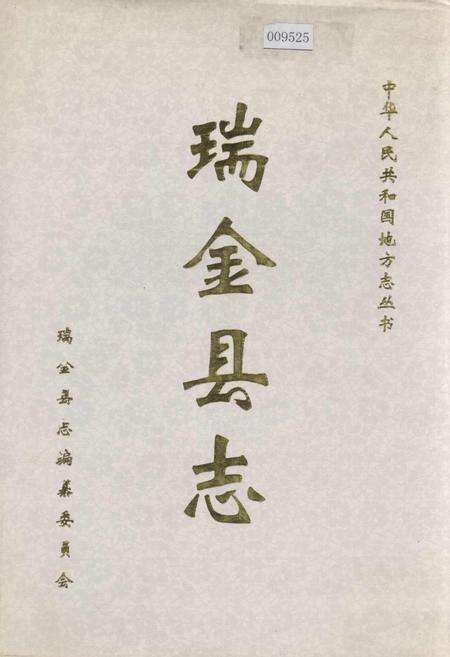 009525
中华人民共和国地方志丛书
瑞金县志
瑞金县志编纂委员会